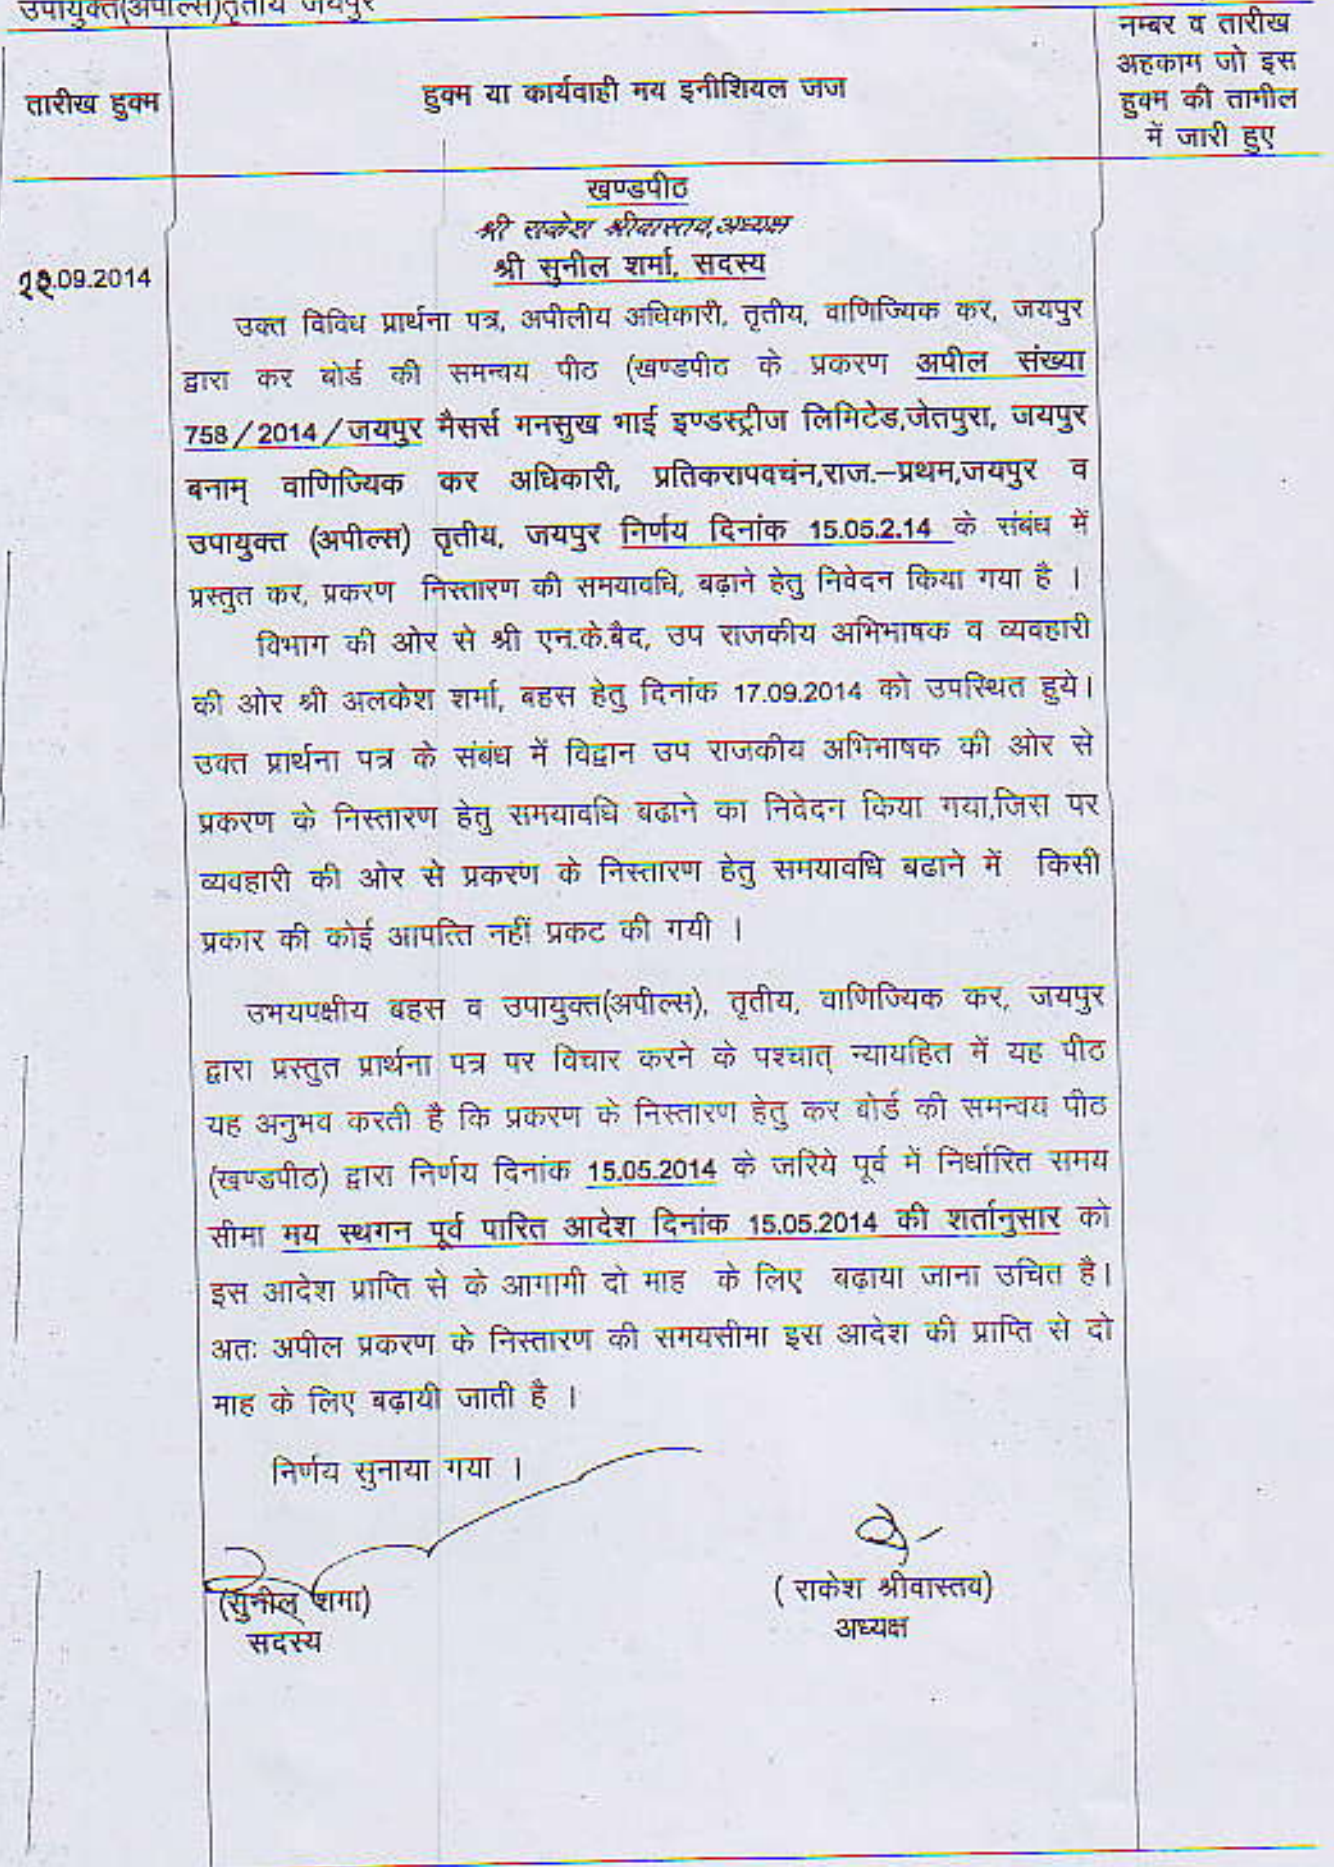 उपायुक्त(अपील्स)तृतीय जयपुर
तारीख हुक्म
हुक्म या कार्यवाही मय इनीशियल जज
नम्बर व तारीख
अहकाम जो इस
हुक्म की तामील
में जारी हुए
खण्डपीठ
श्री राकेश श्रीवास्तव,अध्यक्ष
श्री सुनील शर्मा, सदस्य
.09.2014
उक्त विविध प्रार्थना पत्र, अपीलीय अधिकारी, तृतीय, वाणिज्यिक कर, जयपुर
द्वारा कर बोर्ड की समन्वय पीठ (खण्डपीठ के प्रकरण अपील संख्या
758/2014/जयपुर मैसर्स मनसुख भाई इण्डस्ट्रीज लिमिटेड,जेतपुरा, जयपुर
बनाम् वाणिज्यिक कर अधिकारी, प्रतिकरापवचंन,राज.–प्रथम,जयपुर व
उपायुक्त (अपील्स) तृतीय, जयपुर निर्णय दिनांक 15.05.2.14 के संबंध में
प्रस्तुत कर, प्रकरण निस्तारण की समयावधि, बढ़ाने हेतु निवेदन किया गया है ।
विभाग की ओर से श्री एन.के.बैद, उप राजकीय अभिभाषक व व्यवहारी
की ओर श्री अलकेश शर्मा, बहस हेतु दिनांक 17.09.2014 को उपस्थित हुये।
उक्त प्रार्थना पत्र के संबंध में विद्वान उप राजकीय अभिभाषक की ओर से
प्रकरण के निस्तारण हेतु समयावधि बढाने का निवेदन किया गया,जिस पर
व्यवहारी की ओर से प्रकरंण के निस्तारण हेतु समयावधि बढाने में किसी
प्रकार की कोई आपत्ति नहीं प्रकट की गयी ।
उभयपक्षीय बहस व उपायुक्त(अपील्स), तृतीय, वाणिज्यिक कर, जयपुर
द्वारा प्रस्तुत प्रार्थना पत्र पर विचार करने के पश्चात् न्यायहित में यह पीठ
यह अनुभव करती है कि प्रकरण के निस्तारण हेतु कर बोर्ड की समन्वय पीठ
(खण्डपीठ) द्वारा निर्णय दिनांक 15.05.2014 के जरिये पूर्व में निर्धारित समय
सीमा मय स्थगन पूर्व पारित आदेश दिनांक 15.05.2014 की शर्तानुसार को
इस आदेश प्राप्ति से के आगामी दो माह के लिए बढ़ाया जाना उचित है।
अतः अपील प्रकरण के निस्तारण की समयसीमा इस आदेश की प्राप्ति से दो
माह के लिए बढ़ायी जाती है ।
निर्णय सुनाया गया ।
(सुनील शर्मा)
सदस्य
( राकेश श्रीवास्तव)
अध्यक्ष